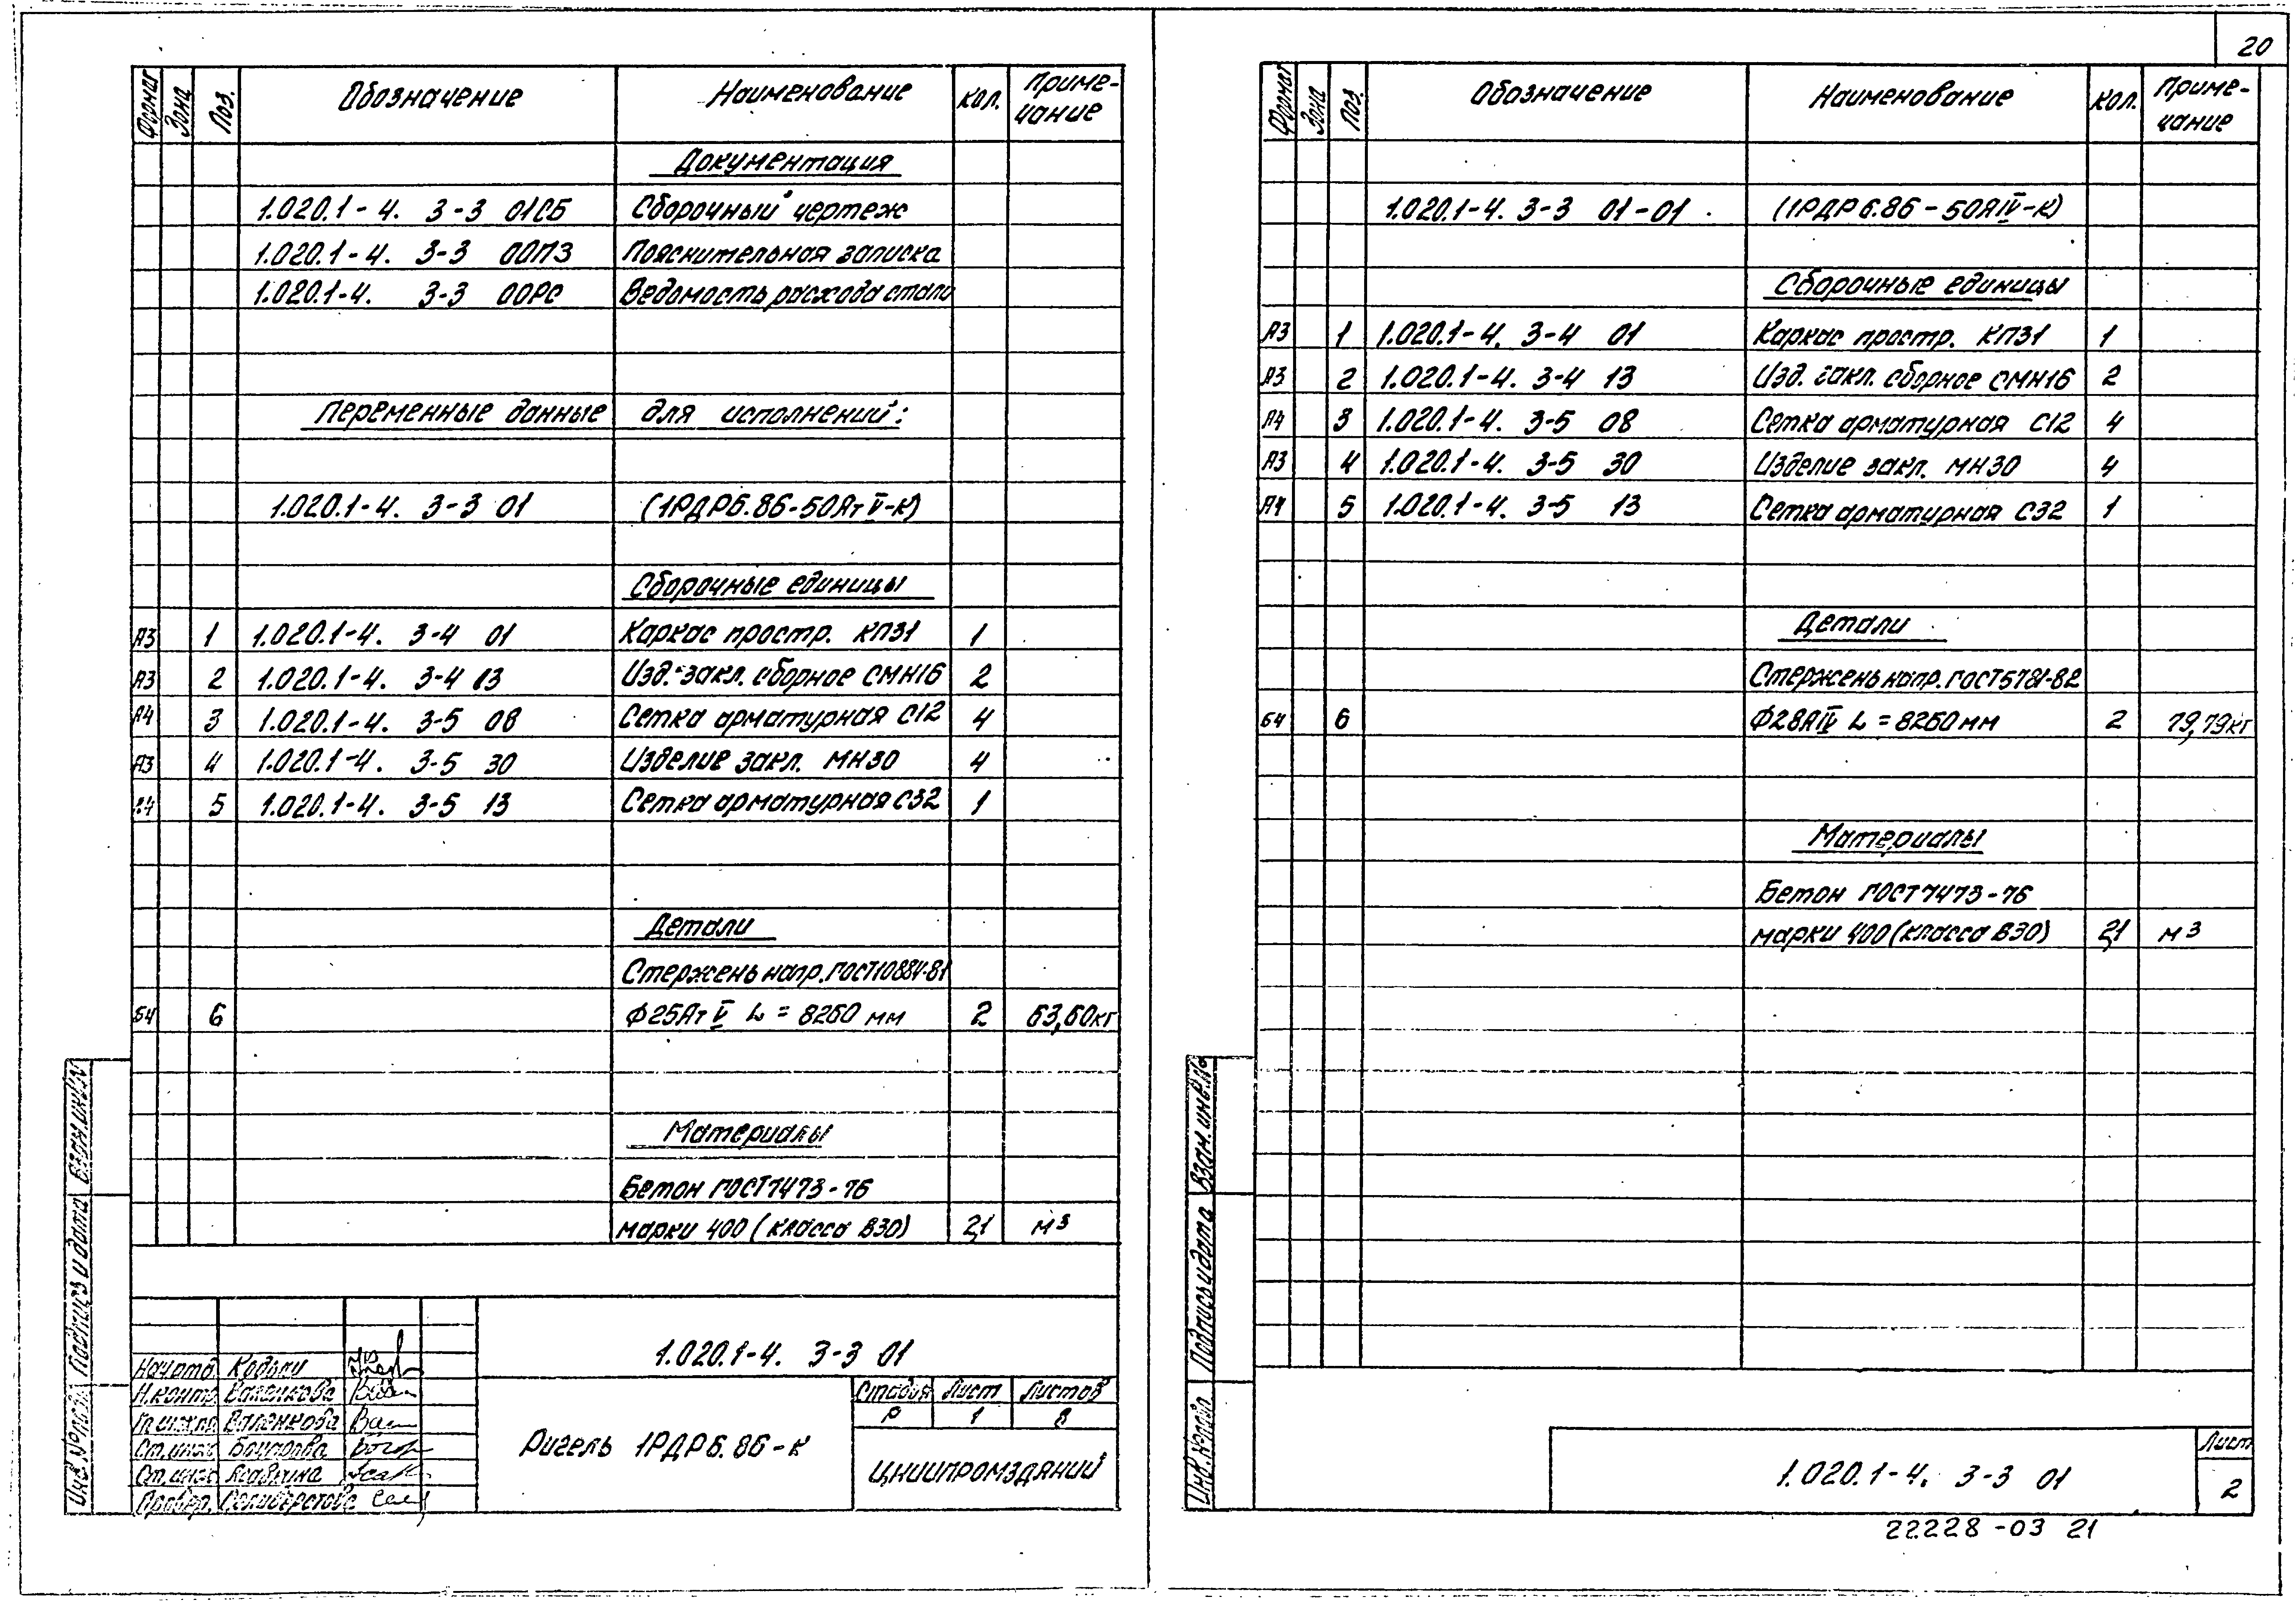 Формат Зона Поз. Обозначение Наименование Кол. Приме-чание
Документация
1.020.1-4. 3-3 01СБ Сборочный чертеж
1.020.1-4. 3-3 00ПЗ Пояснительная записка
1.020.1-4. 3-3 00РС Ведомость расхода стали
Переменные данные для исполнений:
1.020.1-4. 3-3 01 (1РДР6.86-50АтV-К)
Сборочные единицы
А3 1 1.020.1-4. 3-4 01 Каркас простр. КП31 1
А3 2 1.020.1-4. 3-4 13 Изд. закл. сборное СМН16 2
А4 3 1.020.1-4. 3-5 08 Сетка арматурная С12 4
А3 4 1.020.1-4. 3-5 30 Изделие закл. МН30 4
А4 5 1.020.1-4. 3-5 13 Сетка арматурная С32 1
Детали
Стержень напр. ГОСТ10884-81
Б4 6 Ф25АтV L = 8260 мм 2 63,60кг
Материалы
Бетон ГОСТ7473-76
марки 400 (класса В30) 2,1 м³
Взам.инв.№
Подпись и дата
Инв.№подл.
1.020.1-4. 3-3 01
Нач.отд. Кодыш
Н.контр. Василькова
Гл.инж.пр. Василькова
Ст.инж.
Ст.инж.
Провер. Селиверстова
Ригель 1РДР6.86-К
Стадия Лист Листов
Р 1 8
ЦНИИПРОМЗДАНИЙ
20
Формат Зона Поз. Обозначение Наименование Кол. Приме-чание
1.020.1-4. 3-3 01-01 (1РДР6.86-50АIV-К)
Сборочные единицы
А3 1 1.020.1-4. 3-4 01 Каркас простр. КП31 1
А3 2 1.020.1-4. 3-4 13 Изд. закл. сборное СМН16 2
А4 3 1.020.1-4. 3-5 08 Сетка арматурная С12 4
А3 4 1.020.1-4. 3-5 30 Изделие закл. МН30 4
А4 5 1.020.1-4. 3-5 13 Сетка арматурная С32 1
Детали
Стержень напр. ГОСТ5781-82
Б4 6 Ф28АIV L = 8260 мм 2 79,79кг
Материалы
Бетон ГОСТ7473-76
марки 400 (класса В30) 2,1 м³
Взам. инв.№
Подпись и дата
Инв.№подл.
1.020.1-4. 3-3 01
Лист
2
22228-03 21